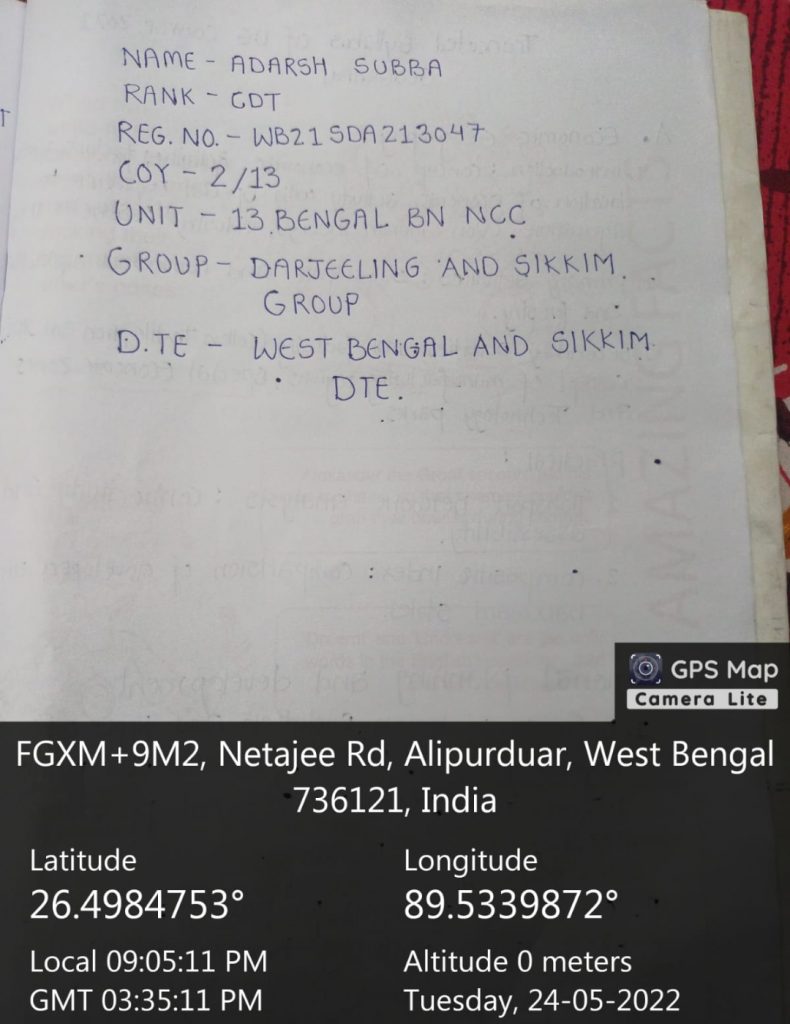 NAME - ADARSH SUBBA
RANK - CDT
REG. NO. - WB21SDA213047
COY - 2/13
UNIT - 13 BENGAL BN NCC
GROUP - DARJEELING AND SIKKIM
GROUP
D.TE - WEST BENGAL AND SIKKIM
DTE.
GPS Map
Camera Lite
FGXM+9M2, Netajee Rd, Alipurduar, West Bengal
736121, India
Latitude
26.4984753°
Longitude
89.5339872°
Local 09:05:11 PM
GMT 03:35:11 PM
Altitude 0 meters
Tuesday, 24-05-2022